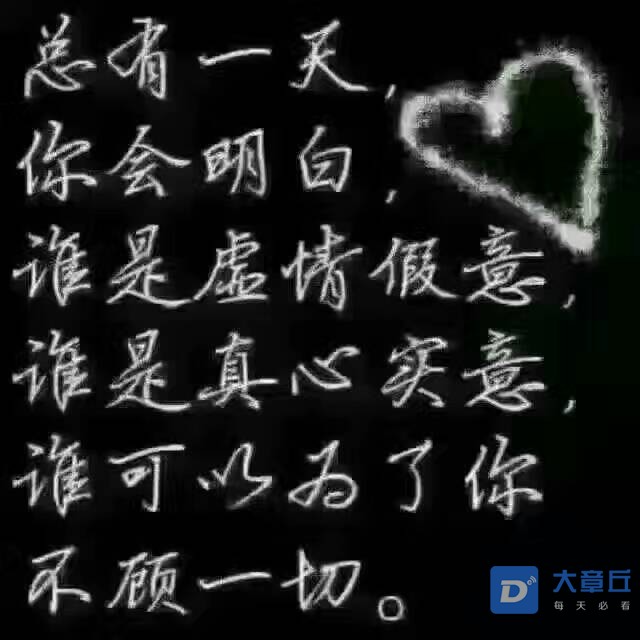 总有一天，
你会明白，
谁是虚情假意，
谁是真心实意，
谁可以为了你
不顾一切。
大章丘
每天必看